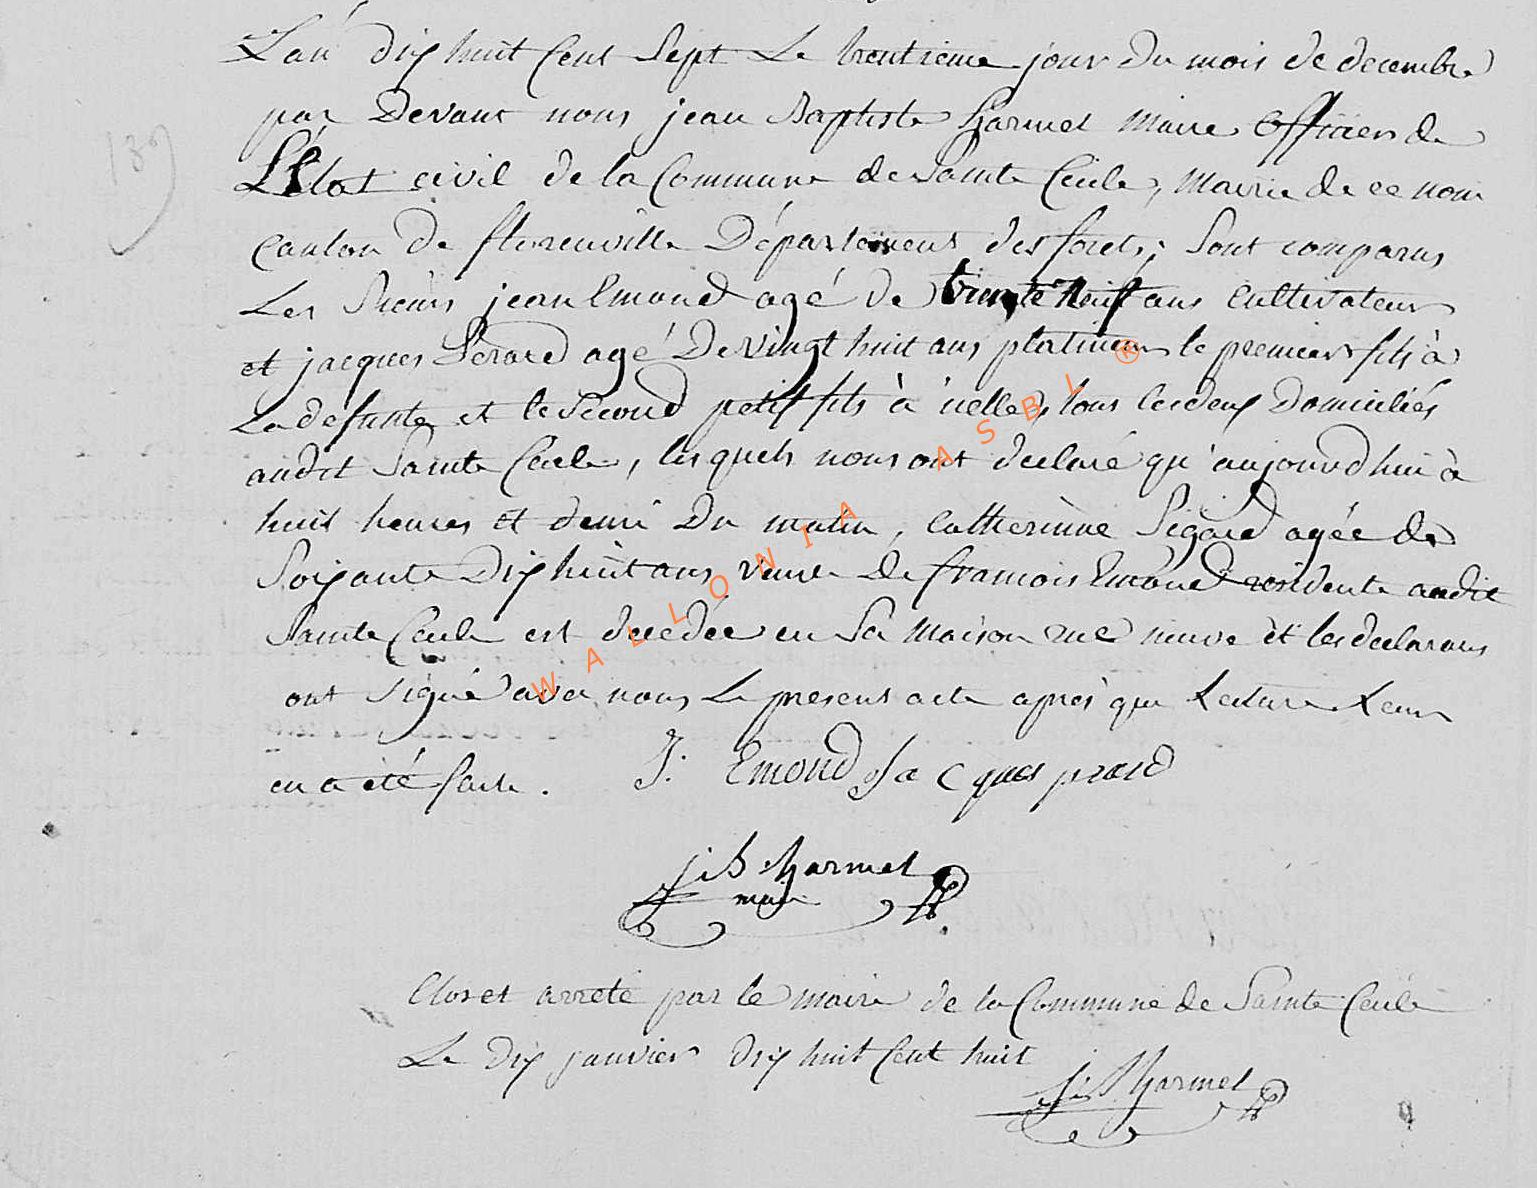 L'an dix huit Cent Sept Le trentieme jour du mois de decembre
par Devant nous jean Baptiste harmel Maire Officier de
L'Etat civil de la Commune de Sainte Cecile, Mairie de ce nom
Canton de florenville Département des forets; Sont comparus
Les Sieurs jean Emond agé de trente Neuf ans Cultivateur
et jacques Pérard agé De vingt huit ans platineur le premier fils à
La defunte et le Second petit fils à icelle, tous les deux Domiciliés
audit Sainte Cecile, lesquels nous ont declaré qu'aujourd'hui à
huit heures et demi Du matin, Catherinne Pigard agée de
Soixante Dix huit ans, veuve De francois Emond residente audit
Sainte Cecile est decedée en Sa Maison rue neuve et les declarans
ont Signé avec nous Le present acte aprés que Lecture Leur
en a été faite. J: Emond Jacques prard
139
j: B: harmel
maire
Clos et arreté par le maire de la Commune de Sainte Cecile
Le Dix janvier dix huit Cent huit
j: B: harmel
WALLONIA ASBL ®